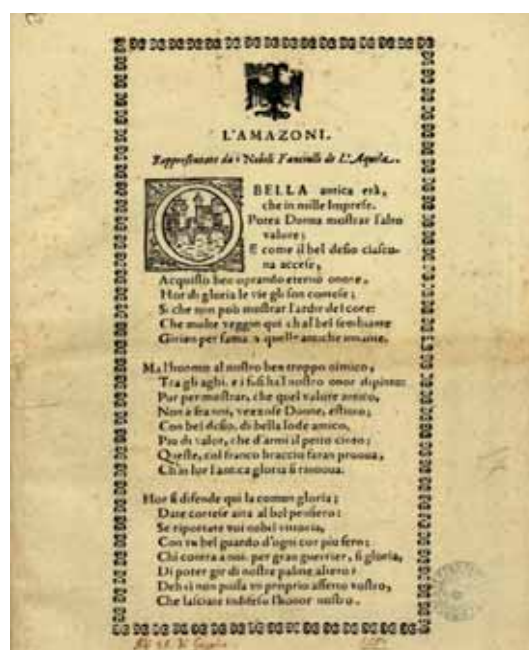 L'AMAZONI.
Rappresentate da i Nobili Fanciulli de L'Aquila.
O BELLA antica età,
che in mille Imprese.
Potea Donna mostrar l'alto
valore;
E come il bel desio ciascu-
na accese,
Acquistò ben oprando eterno onore,
Hor di gloria le vie gli son contese;
Si che non può mostrar l'ardir del core:
Che molte veggon qui ch'al bel sembiante
Girien per fama a quelle antiche innante.
Ma l'huomo al nostro ben troppo nimico,
Tra gli aghi, e i fusi ha'l nostro onor dipinto:
Pur per mostrar, che quel valore antico,
Non è fra noi, vezzose Donne, estinto;
Con bel desio, di bella lode amico,
Piu di valor, che d'armi il petto cinto;
Queste, col franco braccio faran pruoua,
Ch'in lor l'antica gloria si rinoua.
Hor si difende qui la comun gloria;
Date cortese aita al bel pensiero:
Se riportate voi nobil vittoria,
Con un bel guardo d'ogni cor piu fero:
Chi contra a noi, per gran guerrier, si gloria,
Di poter gir di nostre palme altero?
Deh si non possa un proprio affetto vostro,
Che lasciate indifeso l'honor nostro.